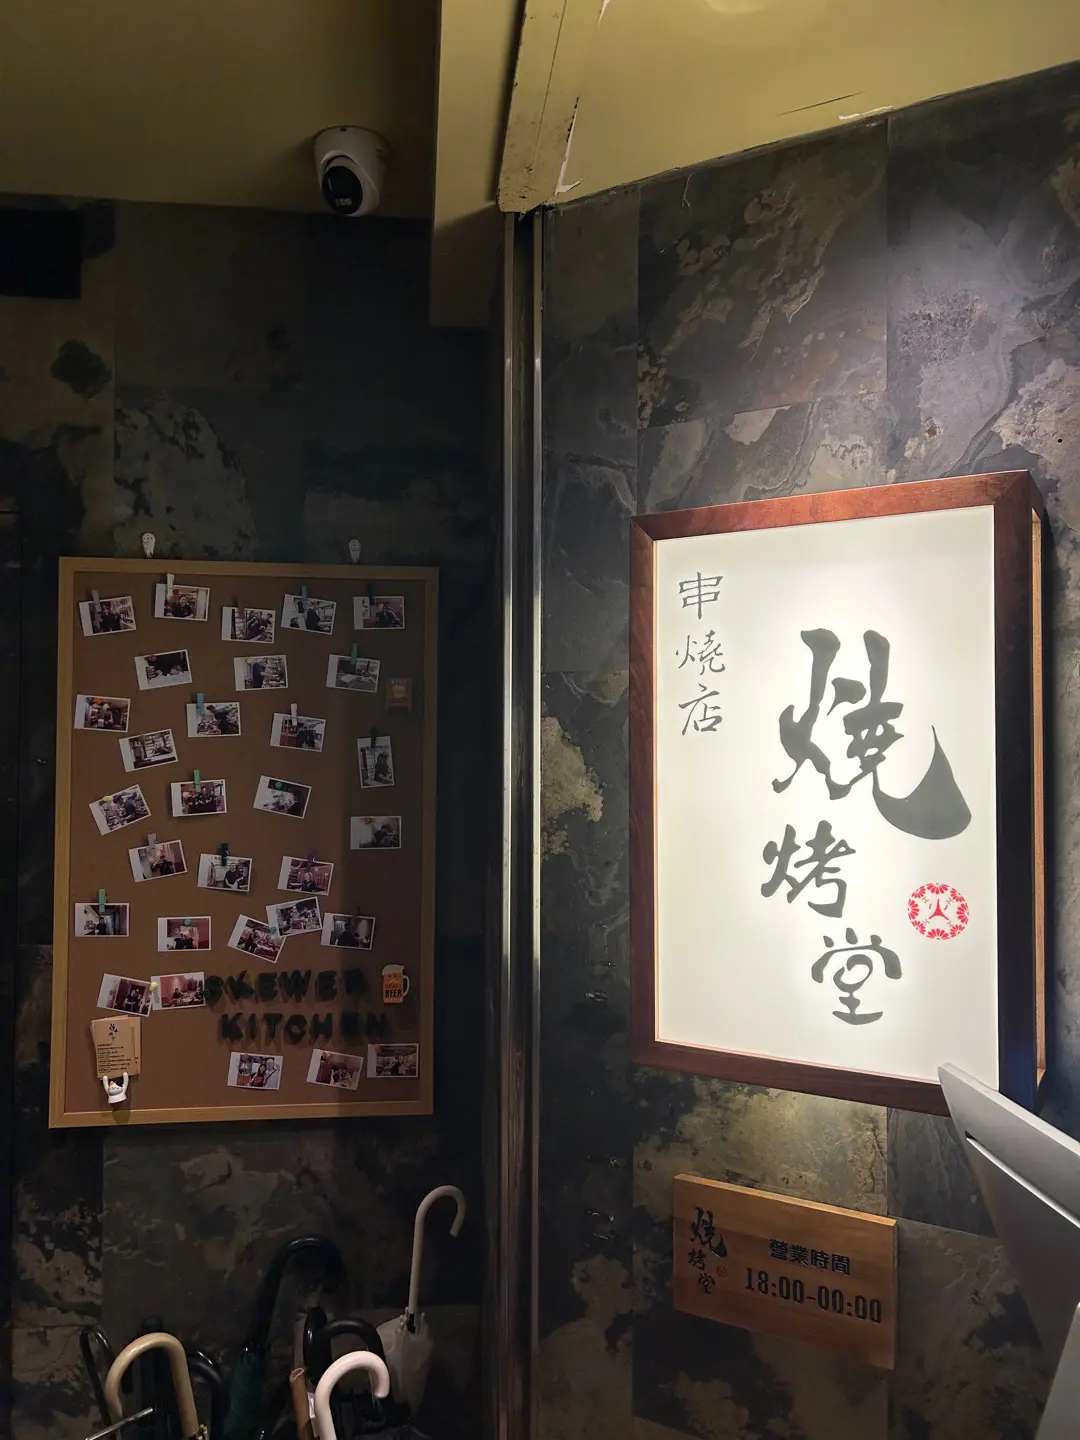 串燒店
燒烤堂
SKEWER
KITCHEN
BEER
燒烤堂
營業時間
18:00-00:00